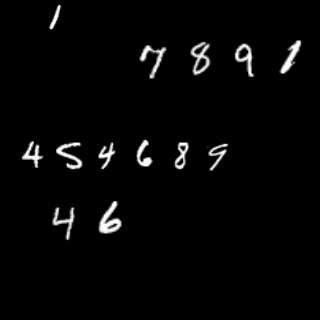 1
7891
454689
46